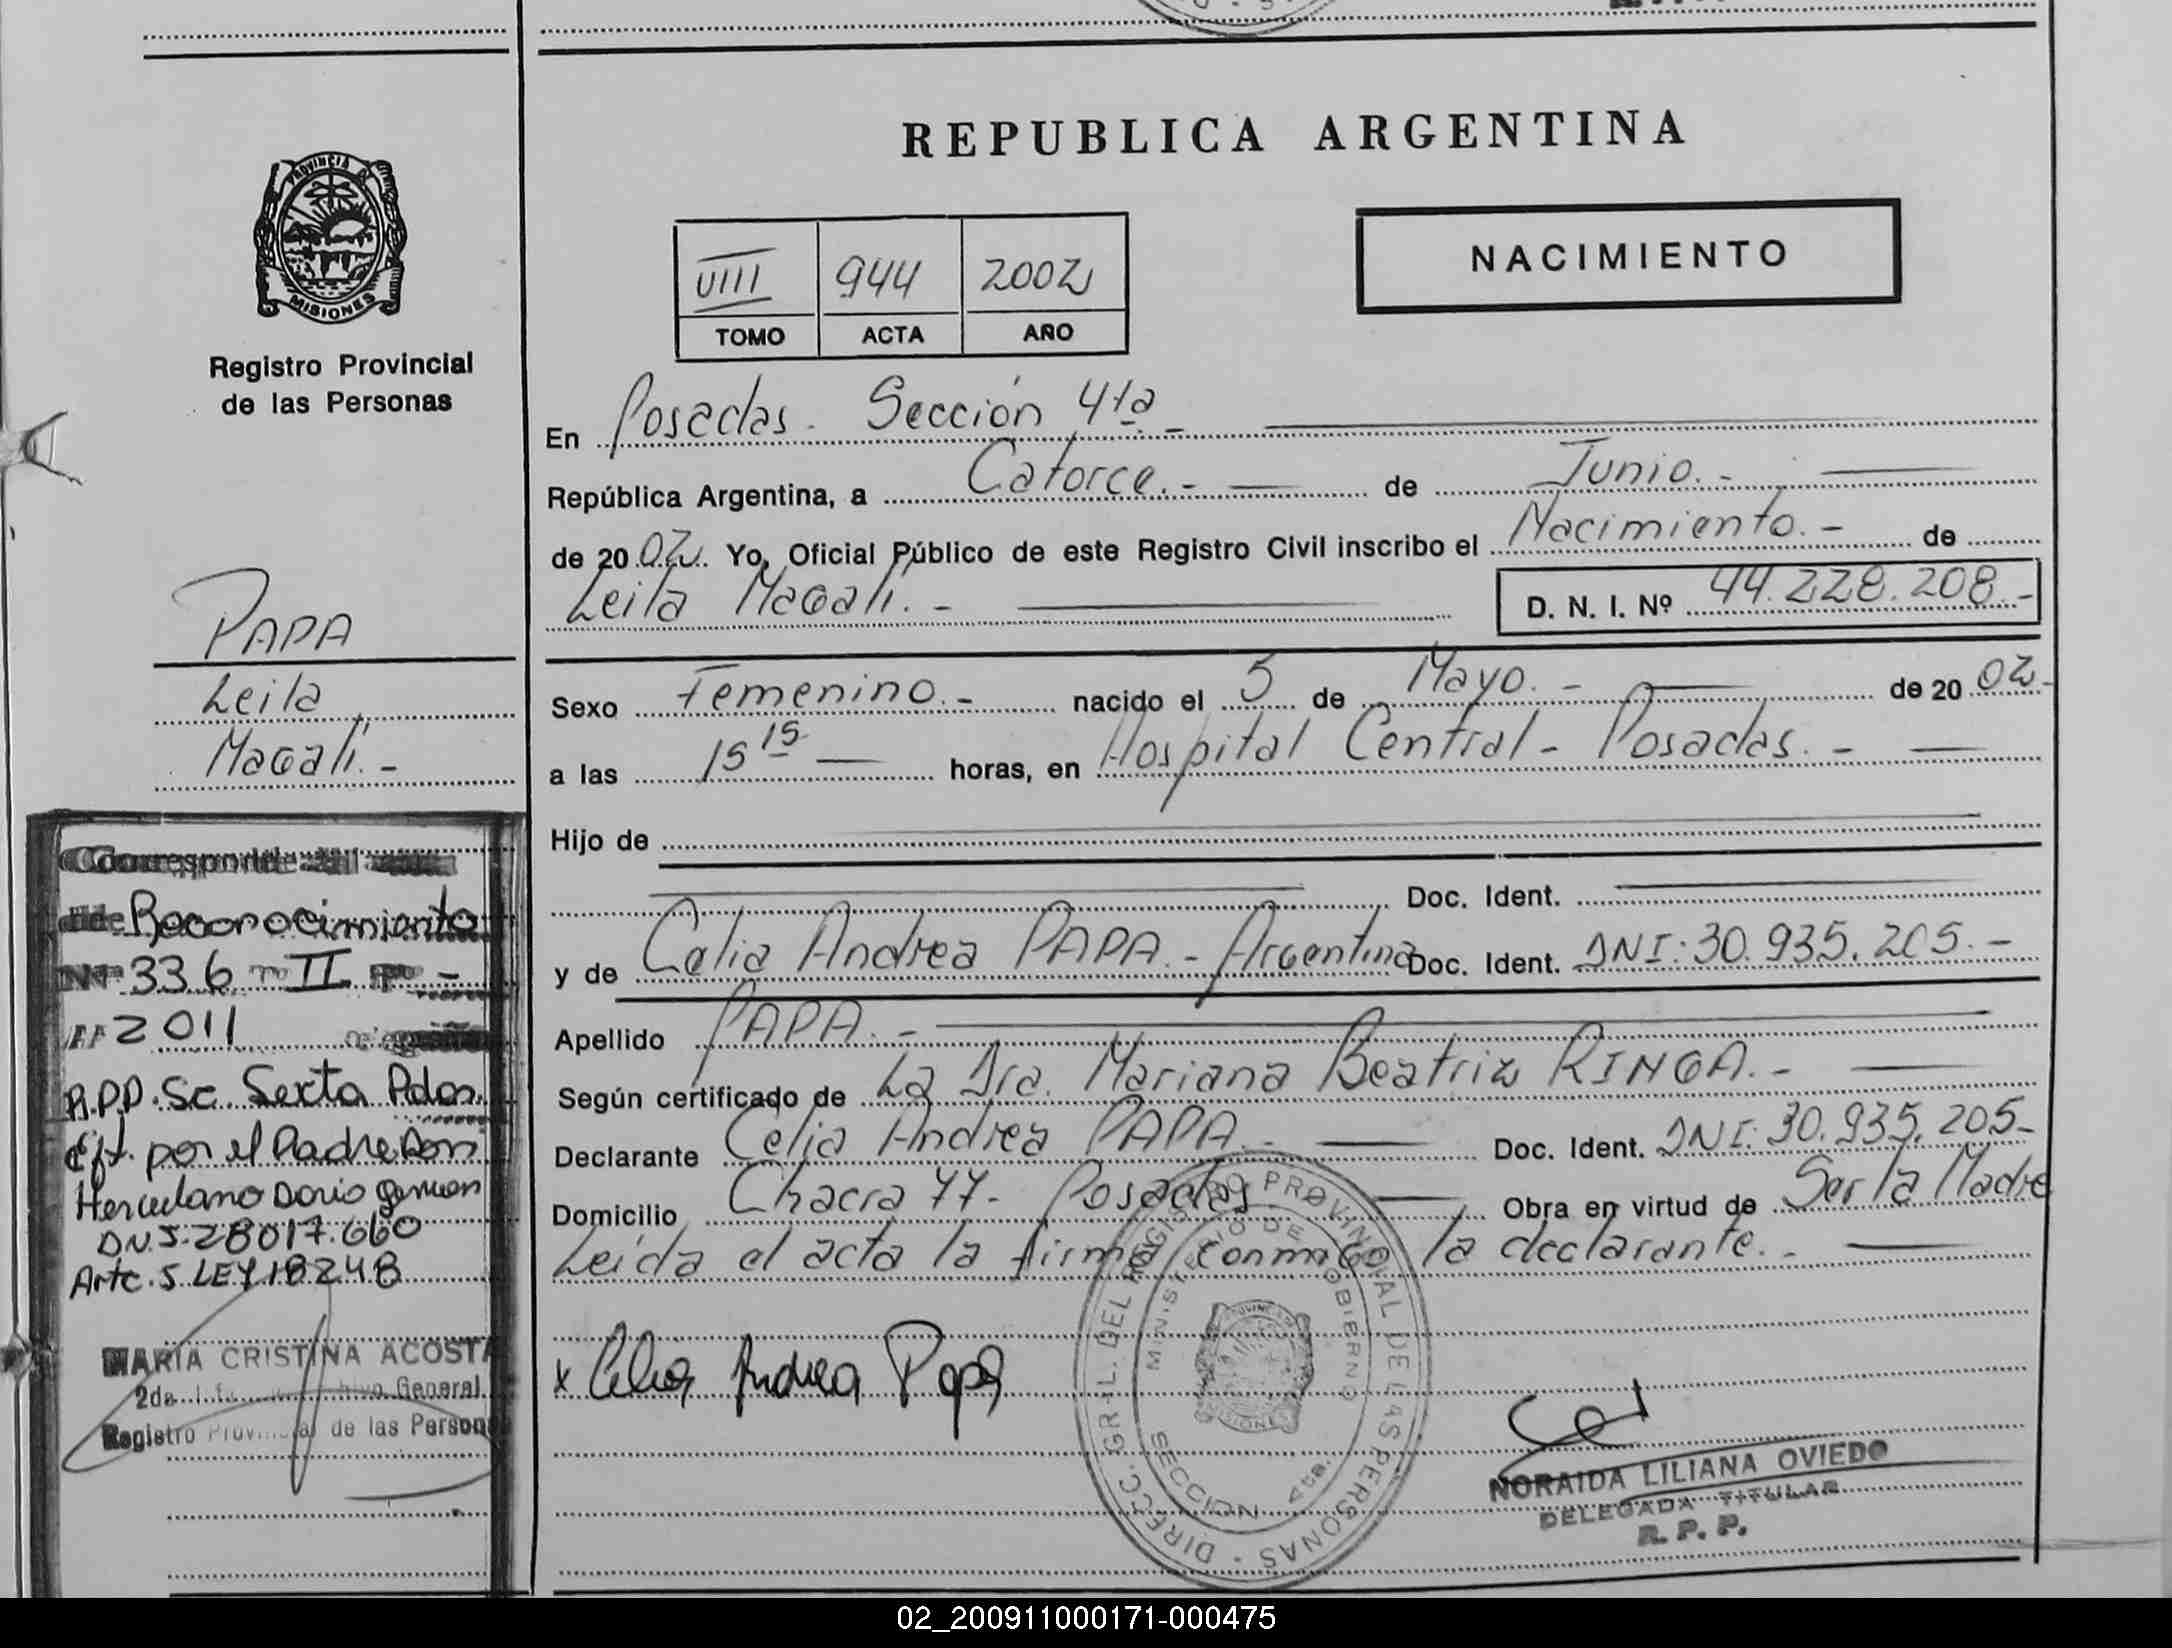 REPUBLICA ARGENTINA
PROVINCIA DE
MISIONES
Registro Provincial
de las Personas
NACIMIENTO
VIII 944 2002
TOMO ACTA AÑO
En Posadas. Sección 4ta
República Argentina, a Catorce.- de Junio.-
de 20 02. Yo, Oficial Público de este Registro Civil inscribo el Nacimiento.- de
Leila Magalí.- D. N. I. Nº 44.228.208.-
PAPA
Leila
Magalí.-
Sexo Femenino.- nacido el 5 de Mayo.- de 20 02.
a las 15 15 horas, en Hospital Central - Posadas.-
Hijo de
Doc. Ident.
y de Celia Andrea PAPA.- Argentina Doc. Ident. DNI: 30.935.205.-
Apellido PAPA.-
Según certificado de La Dra. Mariana Beatriz RINGA.-
Declarante Celia Andrea PAPA.- Doc. Ident. DNI: 30.935.205-
Domicilio Chacra 77- Posadas Obra en virtud de Ser la Madre
Leída el acta la firma conmigo la declarante.-
x Celia Andrea Papa
Corresponde
de Reconocimiento
Nº 336 Tº II Fº -
2011
R.P.P. Sc. Sexta Pdas.
Eft. por el Padre Don
Herculano Dario German
DNI-28017.660
Artc. 5 LEY 18248
MARIA CRISTINA ACOSTA
2da. General
Registro Provincial de las Personas
DIRECC. GRAL. DEL REGISTRO PROVINCIAL DE LAS PERSONAS
MINISTERIO DE GOBIERNO
SECCION 4ta.
NORAIDA LILIANA OVIEDO
DELEGADA TITULAR
R. P. P.
02_200911000171-000475